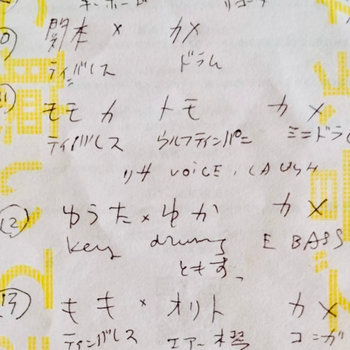 キーボード リコーダ
関本 × カメ
ティンバレス ドラム
モモカ トモ カメ
ティバレス ウルフティンパニー ミニドラ
リサ VOICE, LAUGH
(12) ゆうた × ゆか カメ
key drums E BASS
ともす、
(13) もも × オリト カメ
ティンバレス エアー コンガ